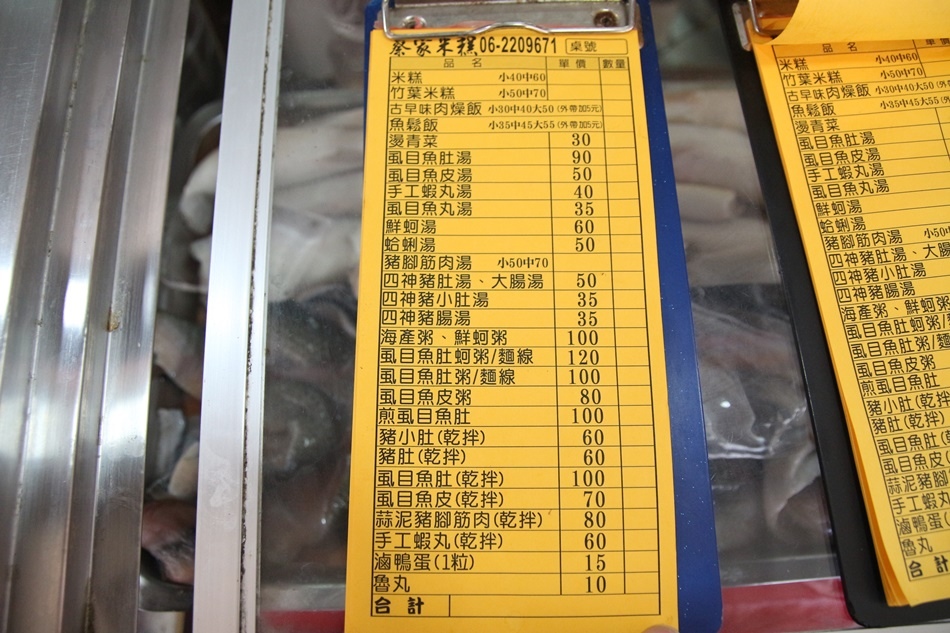 蔡家米糕06-2209671 桌號
品名 單價 數量
米糕 小40中60
竹葉米糕 小50中70
古早味肉燥飯 小30中40大50(外帶加5元)
魚鬆飯 小35中45大55(外帶加5元)
燙青菜 30
虱目魚肚湯 90
虱目魚皮湯 50
手工蝦丸湯 40
虱目魚丸湯 35
鮮蚵湯 60
蛤蜊湯 50
豬腳筋肉湯 小50中70
四神豬肚湯、大腸湯 50
四神豬小肚湯 35
四神豬腸湯 35
海產粥、鮮蚵粥 100
虱目魚肚蚵粥/麵線 120
虱目魚肚粥/麵線 100
虱目魚皮粥 80
煎虱目魚肚 100
豬小肚(乾拌) 60
豬肚(乾拌) 60
虱目魚肚(乾拌) 100
虱目魚皮(乾拌) 70
蒜泥豬腳筋肉(乾拌) 80
手工蝦丸(乾拌) 60
滷鴨蛋(1粒) 15
魯丸 10
合計
品名 單價
米糕 小40中60
竹葉米糕 小50中70
古早味肉燥飯 小30中40大50(外
魚鬆飯 小35中45大55(外
燙青菜
虱目魚肚湯
虱目魚皮湯
手工蝦丸湯
虱目魚丸湯
鮮蚵湯
蛤蜊湯
豬腳筋肉湯 小50中
四神豬肚湯、大腸
四神豬小肚湯
四神豬腸湯
海產粥、鮮蚵粥
虱目魚肚蚵粥
虱目魚肚粥/麵
虱目魚皮粥
煎虱目魚肚
豬小肚(乾拌
豬肚(乾拌
虱目魚肚(乾
虱目魚皮(
蒜泥豬腳
手工蝦丸
滷鴨蛋(
魯丸
合計